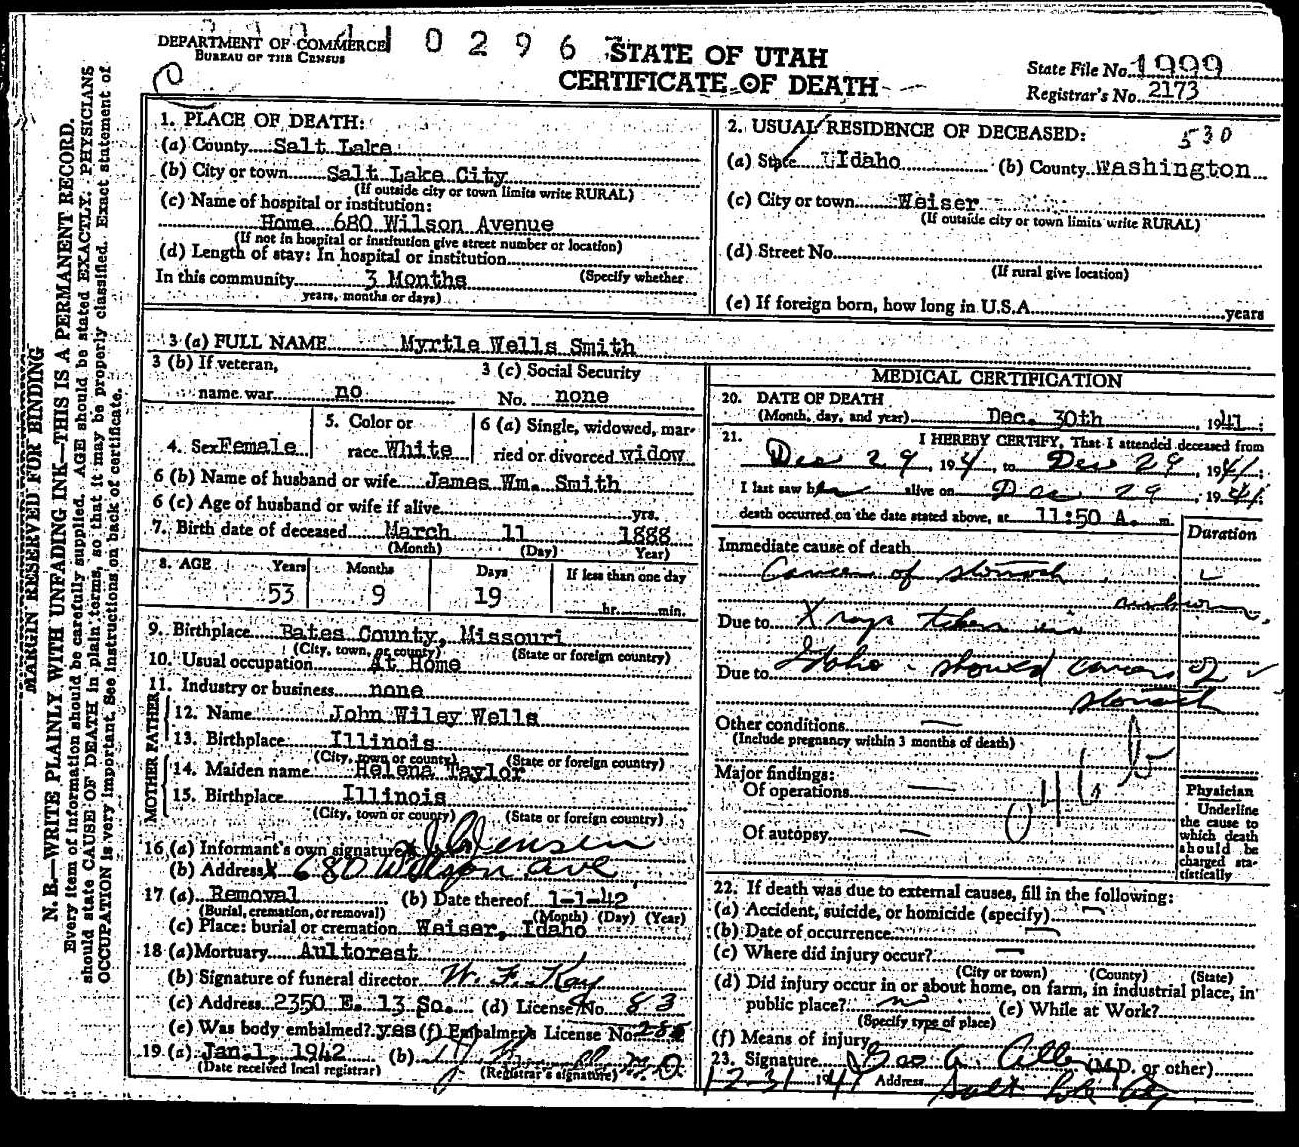 DEPARTMENT OF COMMERCE
BUREAU OF THE CENSUS
0 2 9 6
STATE OF UTAH
CERTIFICATE OF DEATH
State File No. 1999
Registrar's No. 2173
MARGIN RESERVED FOR BINDING
N. B.—WRITE PLAINLY WITH UNFADING INK—THIS IS A PERMANENT RECORD.
Every item of information should be carefully supplied. AGE should be stated EXACTLY. PHYSICIANS
should state CAUSE OF DEATH in plain terms, so that it may be properly classified. Exact statement of
OCCUPATION is very important. See instructions on back of certificate.
1. PLACE OF DEATH:
(a) County Salt Lake
(b) City or town Salt Lake City
(If outside city or town limits write RURAL)
(c) Name of hospital or institution:
Home 680 Wilson Avenue
(If not in hospital or institution give street number or location)
(d) Length of stay: In hospital or institution
In this community 3 Months (Specify whether
years, months or days)
2. USUAL RESIDENCE OF DECEASED: 530
(a) State Idaho (b) County Washington
(c) City or town Weiser
(If outside city or town limits write RURAL)
(d) Street No.
(If rural give location)
(e) If foreign born, how long in U.S.A. years
3 (a) FULL NAME Myrtle Wells Smith
3 (b) If veteran, name war no
3 (c) Social Security No. none
4. Sex Female
5. Color or race White
6 (a) Single, widowed, married or divorced widow
6 (b) Name of husband or wife James Wm. Smith
6 (c) Age of husband or wife if alive yrs.
7. Birth date of deceased March 11 1888
(Month) (Day) Year)
8. AGE Years Months Days If less than one day
53 9 19 hr. min.
9. Birthplace Bates County, Missouri
(City, town, or county) (State or foreign country)
10. Usual occupation At Home
11. Industry or business none
FATHER
12. Name John Wiley Wells
13. Birthplace Illinois
(City, town or county) (State or foreign country)
MOTHER
14. Maiden name Helena Taylor
15. Birthplace Illinois
(City, town or county) (State or foreign country)
16 (a) Informant's own signature x Jensen
(b) Address x 680 Wilson ave
17 (a) Removal (b) Date thereof 1-1-42
(Burial, cremation, or removal) (Month) (Day) (Year)
(c) Place: burial or cremation Weiser, Idaho
18 (a) Mortuary Aultorest
(b) Signature of funeral director W. F. Kay
(c) Address 2350 E. 13 So. (d) License No. 83
(e) Was body embalmed? yes (f) Embalmer's License No.
19 (a) Jan. 1, 1942 (b) M.D.
(Date received local registrar) (Registrar's signature)
MEDICAL CERTIFICATION
20. DATE OF DEATH
(Month, day, and year) Dec. 30th 1941
21. I HEREBY CERTIFY, That I attended deceased from
Dec 29, 194 to Dec 29 1941
I last saw her alive on Dec 29, 1941
death occurred on the date stated above, at 11:50 A. m.
Duration
Immediate cause of death
Cancer of stomach
unknown
Due to X rays taken in
Due to Idaho - showed cancer of
stomach
Other conditions —
(Include pregnancy within 3 months of death)
Major findings:
Of operations —
Of autopsy —
046 b
Physician
Underline
the cause to
which death
should be
charged sta-
tistically
22. If death was due to external causes, fill in the following:
(a) Accident, suicide, or homicide (specify) —
(b) Date of occurrence —
(c) Where did injury occur? —
(City or town) (County) (State)
(d) Did injury occur in or about home, on farm, in industrial place, in
public place? no (e) While at Work?
(Specify type of place)
(f) Means of injury
23. Signature Geo A. Allen (M.D. or other)
12-31 1941 Address Salt Lake City